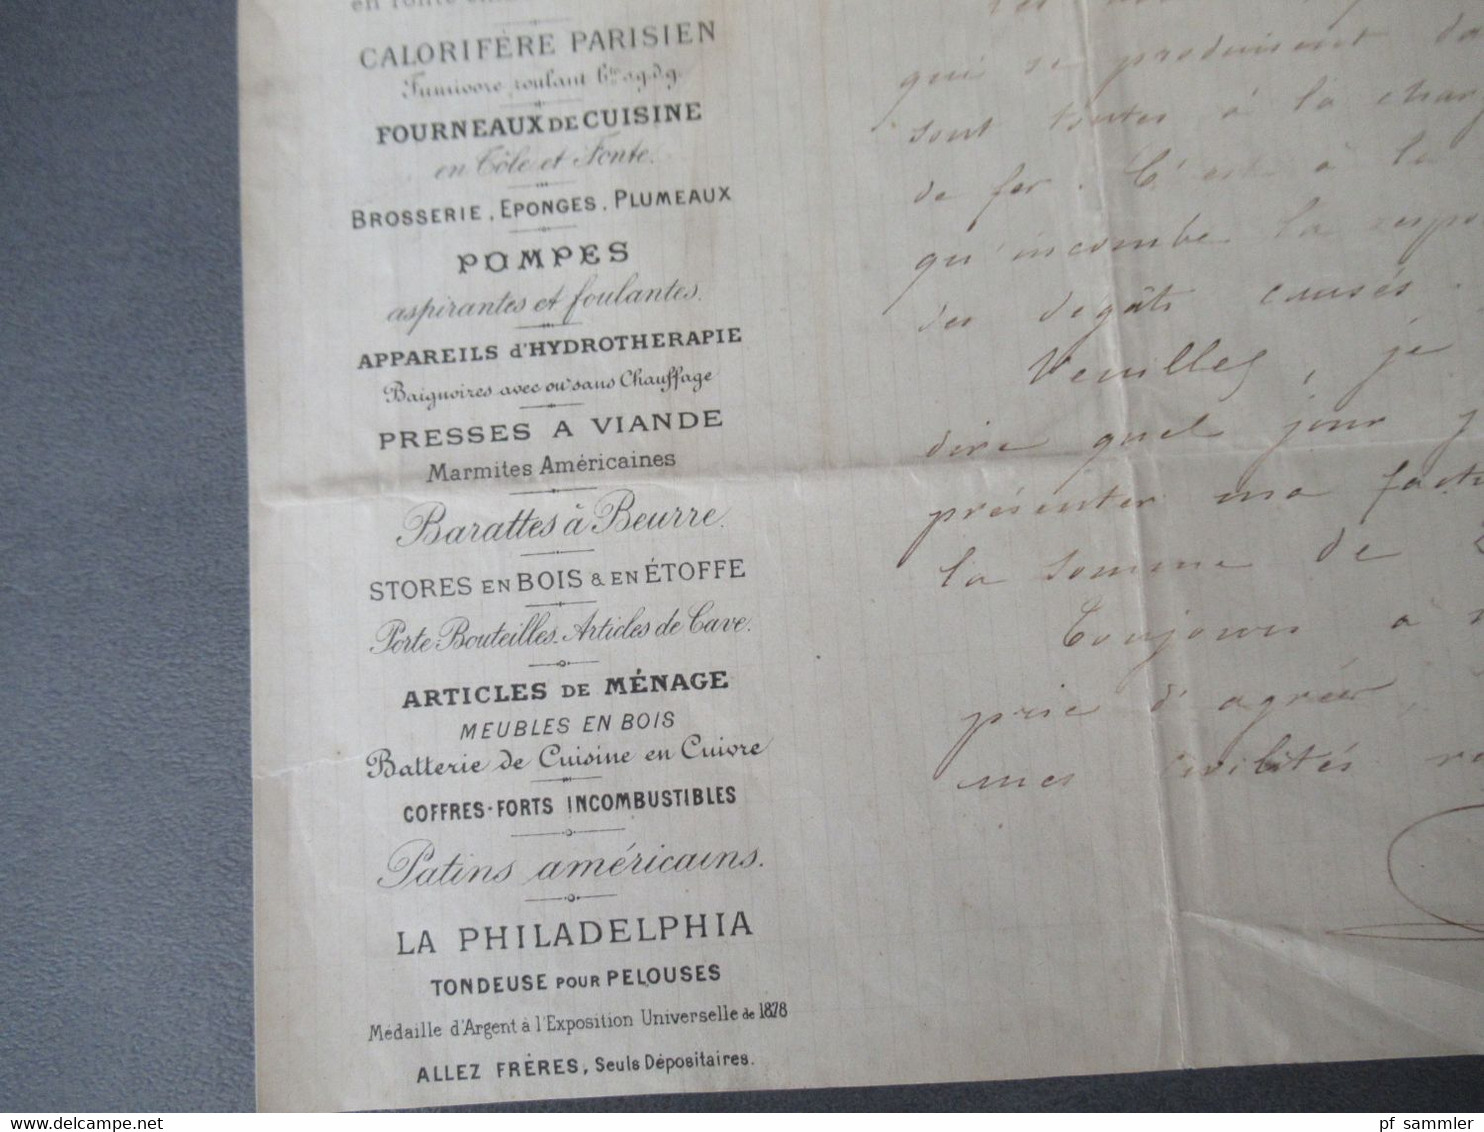 en fonte
CALORIFÈRE PARISIEN
Fumivore roulant bté s.g.d.g.
FOURNEAUX DE CUISINE
en Tôle et Fonte.
BROSSERIE, EPONGES, PLUMEAUX
POMPES
aspirantes et foulantes.
APPAREILS d'HYDROTHERAPIE
Baignoires avec ou sans Chauffage
PRESSES A VIANDE
Marmites Américaines
Barattes à Beurre.
STORES EN BOIS & EN ÉTOFFE
Porte-Bouteilles. Articles de Cave.
ARTICLES DE MÉNAGE
MEUBLES EN BOIS
Batterie de Cuisine en Cuivre
COFFRES-FORTS INCOMBUSTIBLES
Patins américains.
LA PHILADELPHIA
TONDEUSE POUR PELOUSES
Médaille d'Argent à l'Exposition Universelle de 1878
ALLEZ FRÈRES, Seuls Dépositaires.
qui se produisent
sont toutes à la
de fer. C'est à la
qu'incombe la
des dégâts causés.
Veuillez, je
dire quel jour
présenter ma
la somme de
Toujours à
prie d'agréer,
mes civilités
pf sammler